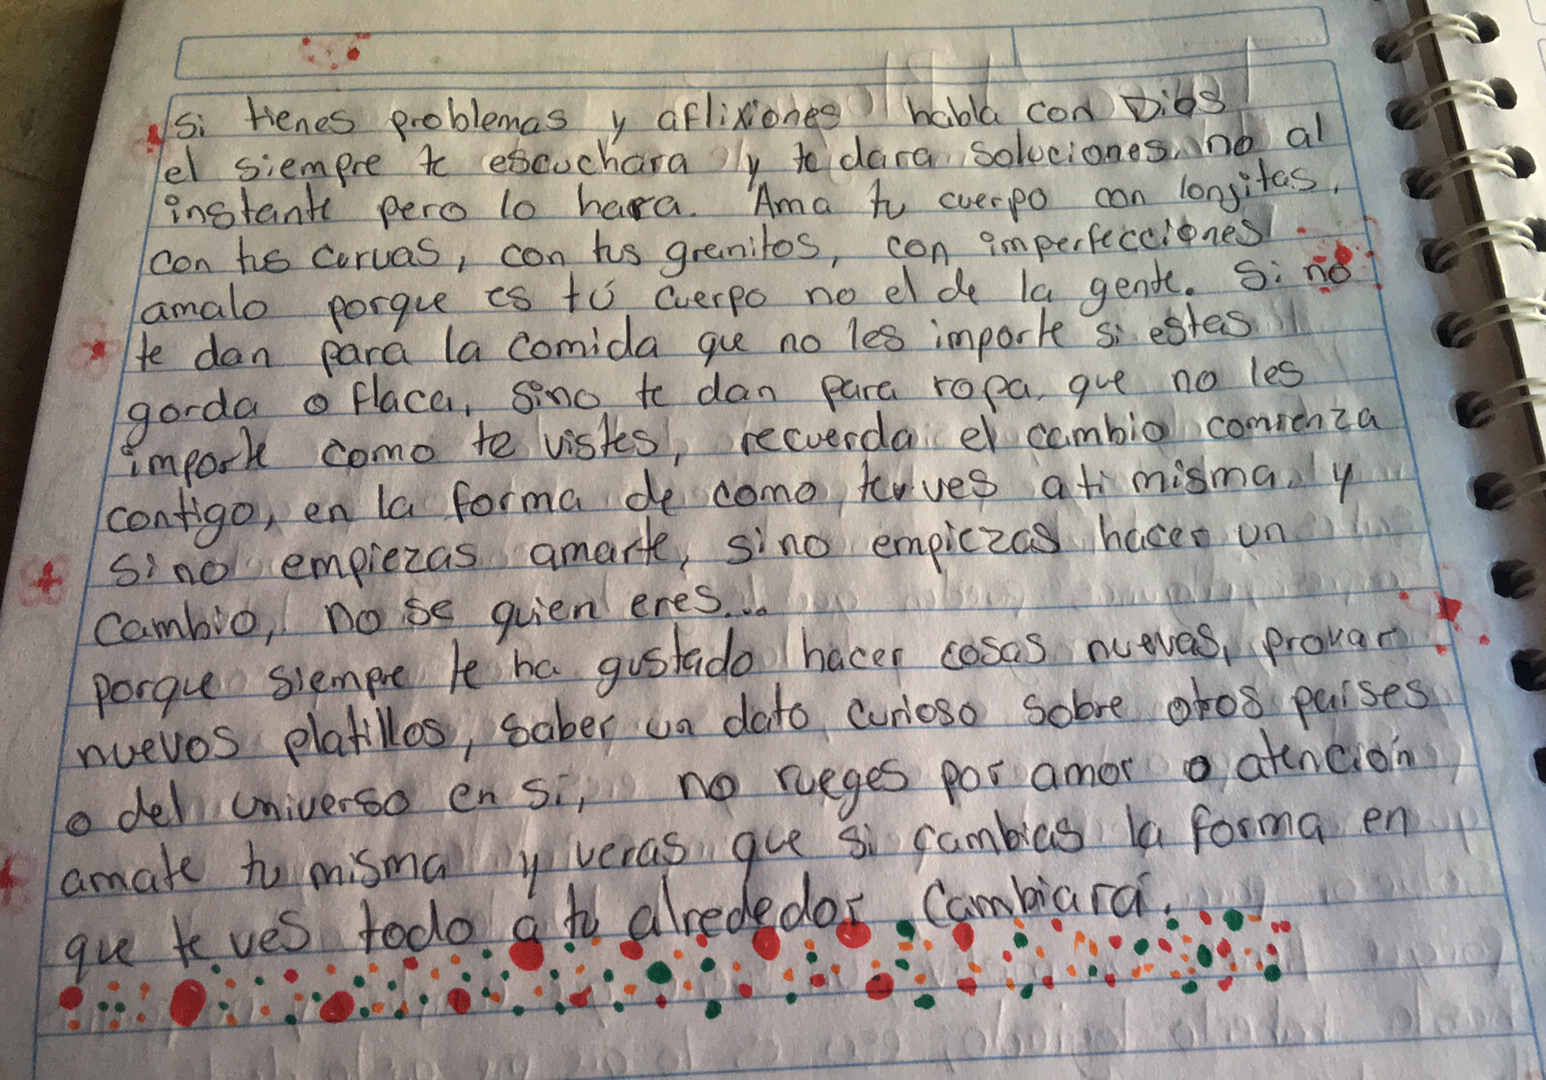 si tienes problemas y aflixiones habla con Dios
el siempre te escuchara y te dara soluciones, no al
instante pero lo hara. Ama tu cuerpo con lonjitas,
con tus curvas, con tus granitos, con imperfecciones
amalo porque es tú cuerpo no el de la gente. Si no
te dan para la comida que no les importe si estas
gorda o flaca, sino te dan para ropa, que no les
importe como te vistes, recuerda el cambio comienza
contigo, en la forma de como tu ves a ti misma, y
sino empiezas amarte, sino empiezas hacer un
cambio, no se quien eres...
porque siempre te ha gustado hacer cosas nuevas, provar
nuevos platillos, saber un dato curioso sobre otros paises
o del universo en si, no rueges por amor o atención
amate tu misma y veras que si cambias la forma en
que te ves todo a tu alrededor cambiará.